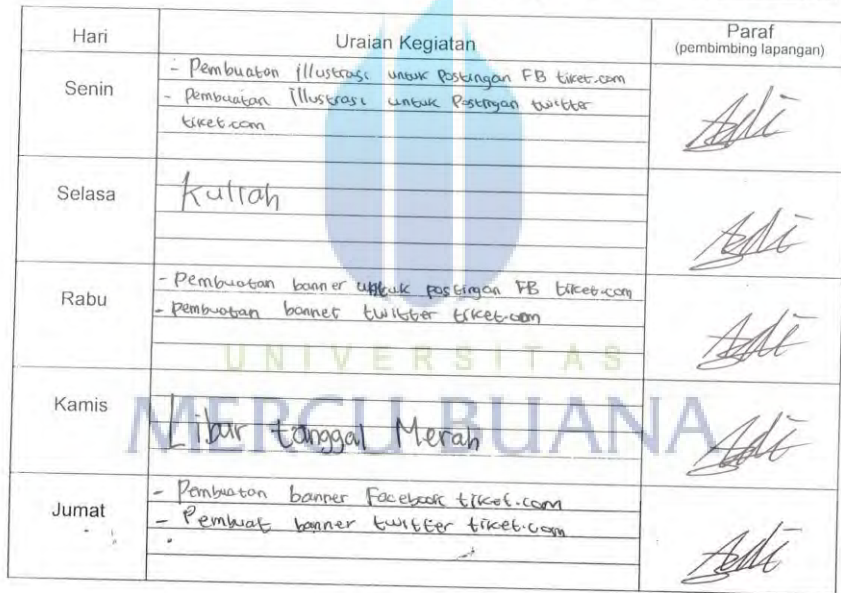 Hari Uraian Kegiatan Paraf
(pembimbing lapangan)
Senin
- Pembuatan illustrasi untuk Postingan FB tiket.com
- Pembuatan illustrasi untuk Postingan twitter
tiket.com
Adi
Selasa
Kuliah
Adi
Rabu
- Pembuatan banner untuk postingan FB tiket.com
- pembuatan banner twitter tiket.com
Adi
UNIVERSITAS
MERCU BUANA
Kamis
Libur tanggal Merah
Adi
Jumat
- Pembuatan banner Facebook tiket.com
- Pembuat banner twitter tiket.com
Adi